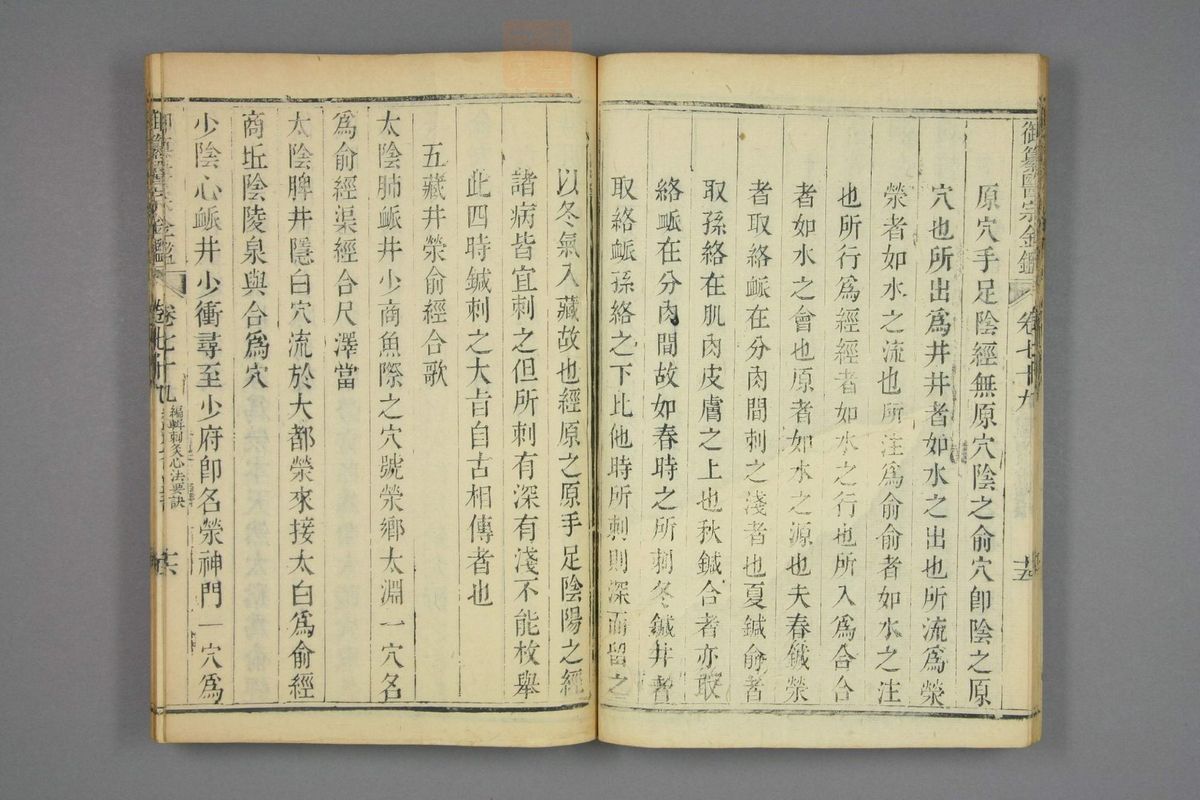 御纂醫宗金鑑 卷七十九 十五
原穴手足陰經無原穴陰之俞穴卽陰之原
穴也所出爲井井者如水之出也所流爲滎
滎者如水之流也所注爲俞俞者如水之注
也所行爲經經者如水之行也所入爲合合
者如水之會也原者如水之源也夫春鍼滎
者取絡衇在分肉間刺之淺者也夏鍼俞者
取孫絡在肌肉皮膚之上也秋鍼合者亦取
絡衇在分肉間故如春時之所刺冬鍼井者
取絡衇孫絡之下比他時所刺則深而留之
以冬氣入藏故也經原之原手足陰陽之經
諸病皆宜刺之但所刺有深有淺不能枚舉
此四時鍼刺之大旨自古相傳者也
五藏井滎俞經合歌
太陰肺衇井少商魚際之穴號滎鄉太淵一穴名
爲俞經渠經合尺澤當
太陰脾井隱白穴流於大都滎來接太白爲俞經
商坵陰陵泉與合爲穴
少陰心衇井少衝尋至少府卽名滎神門一穴爲
御纂醫宗金鑑 卷七十九 編輯刺灸心法要訣 十六